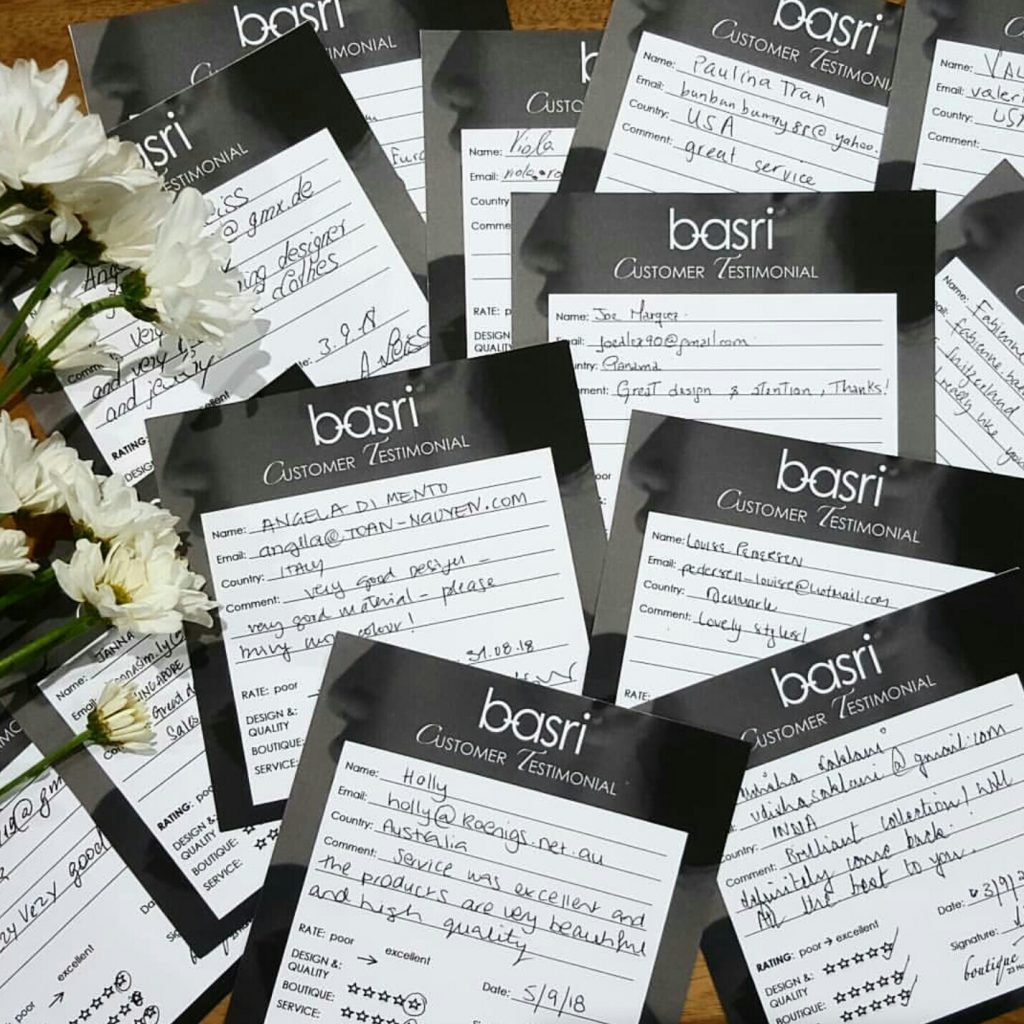 basri
CUSTOMER TESTIMONIAL
basri
TESTIMONIAL
@gmx.de
designer
clothes
and very
and jewelry
3.9.18
A. Weiss
RATING:
Name: Viola
Email:
Country
RATE: p
DESIGN
QUALITY
basri
CUSTOMER TESTIMONIAL
Name: Paulina Tran
Email: bunbunbunny88@yahoo.
Country: USA
Comment: great service
Name: VAL
Email: valeri
Country: USA
Comment:
basri
CUSTOMER TESTIMONIAL
Name: Joe Marquez
Email: joedlex90@gmail.com
Panama
Great design & atention, Thanks!
Name: Fabienne
Switzerland
I really like you
basri
CUSTOMER TESTIMONIAL
Name: ANGELA DI MENTO
Email: angella@TOAN-NGUYEN.COM
Country: ITALY
Comment: very good design -
very good material - please
colour!
31.08.18
RATE: poor
DESIGN &
QUALITY
BOUTIQUE:
SERVICE:
basri
CUSTOMER TESTIMONIAL
Name: LOUISE PEDERSEN
Email: pedersen_louise@hotmail.com
Country: Denmark
Comment: Lovely styles!
RATE:
Name: JANNA
SINGAPORE
Great
Sales
RATING: poor
DESIGN &
QUALITY
BOUTIQUE:
SERVICE:
very good
poor → excellent
basri
CUSTOMER TESTIMONIAL
Name: Holly
Email: holly@koenigs.net.au
Country: Australia
Comment: Service was excellent and
the products are very beautiful
and high quality
RATE: poor → excellent
DESIGN &
QUALITY
BOUTIQUE:
SERVICE:
Date: 5/9/18
basri
CUSTOMER TESTIMONIAL
@gmail.com
Country: INDIA
Comment: Brilliant collection! Will
definitely come back.
All the best to you.
RATING: poor → excellent
DESIGN &
QUALITY
BOUTIQUE:
Date:
Signature:
boutique